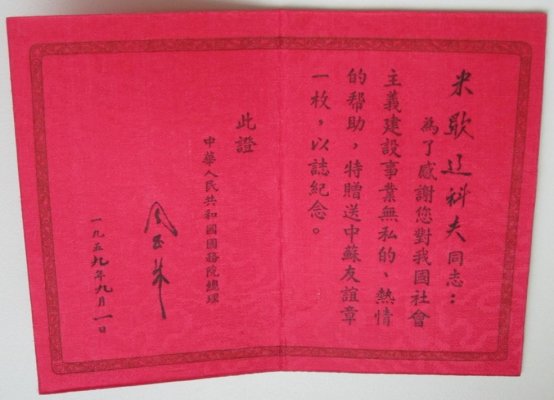 米歇辽科夫同志：
為了感謝您對我國社會
主義建設事業無私的、熱情
的帮助，特贈送中蘇友誼章
一枚，以誌紀念。
此證
中華人民共和國國務院總理
周恩来
一九五九年九月一日